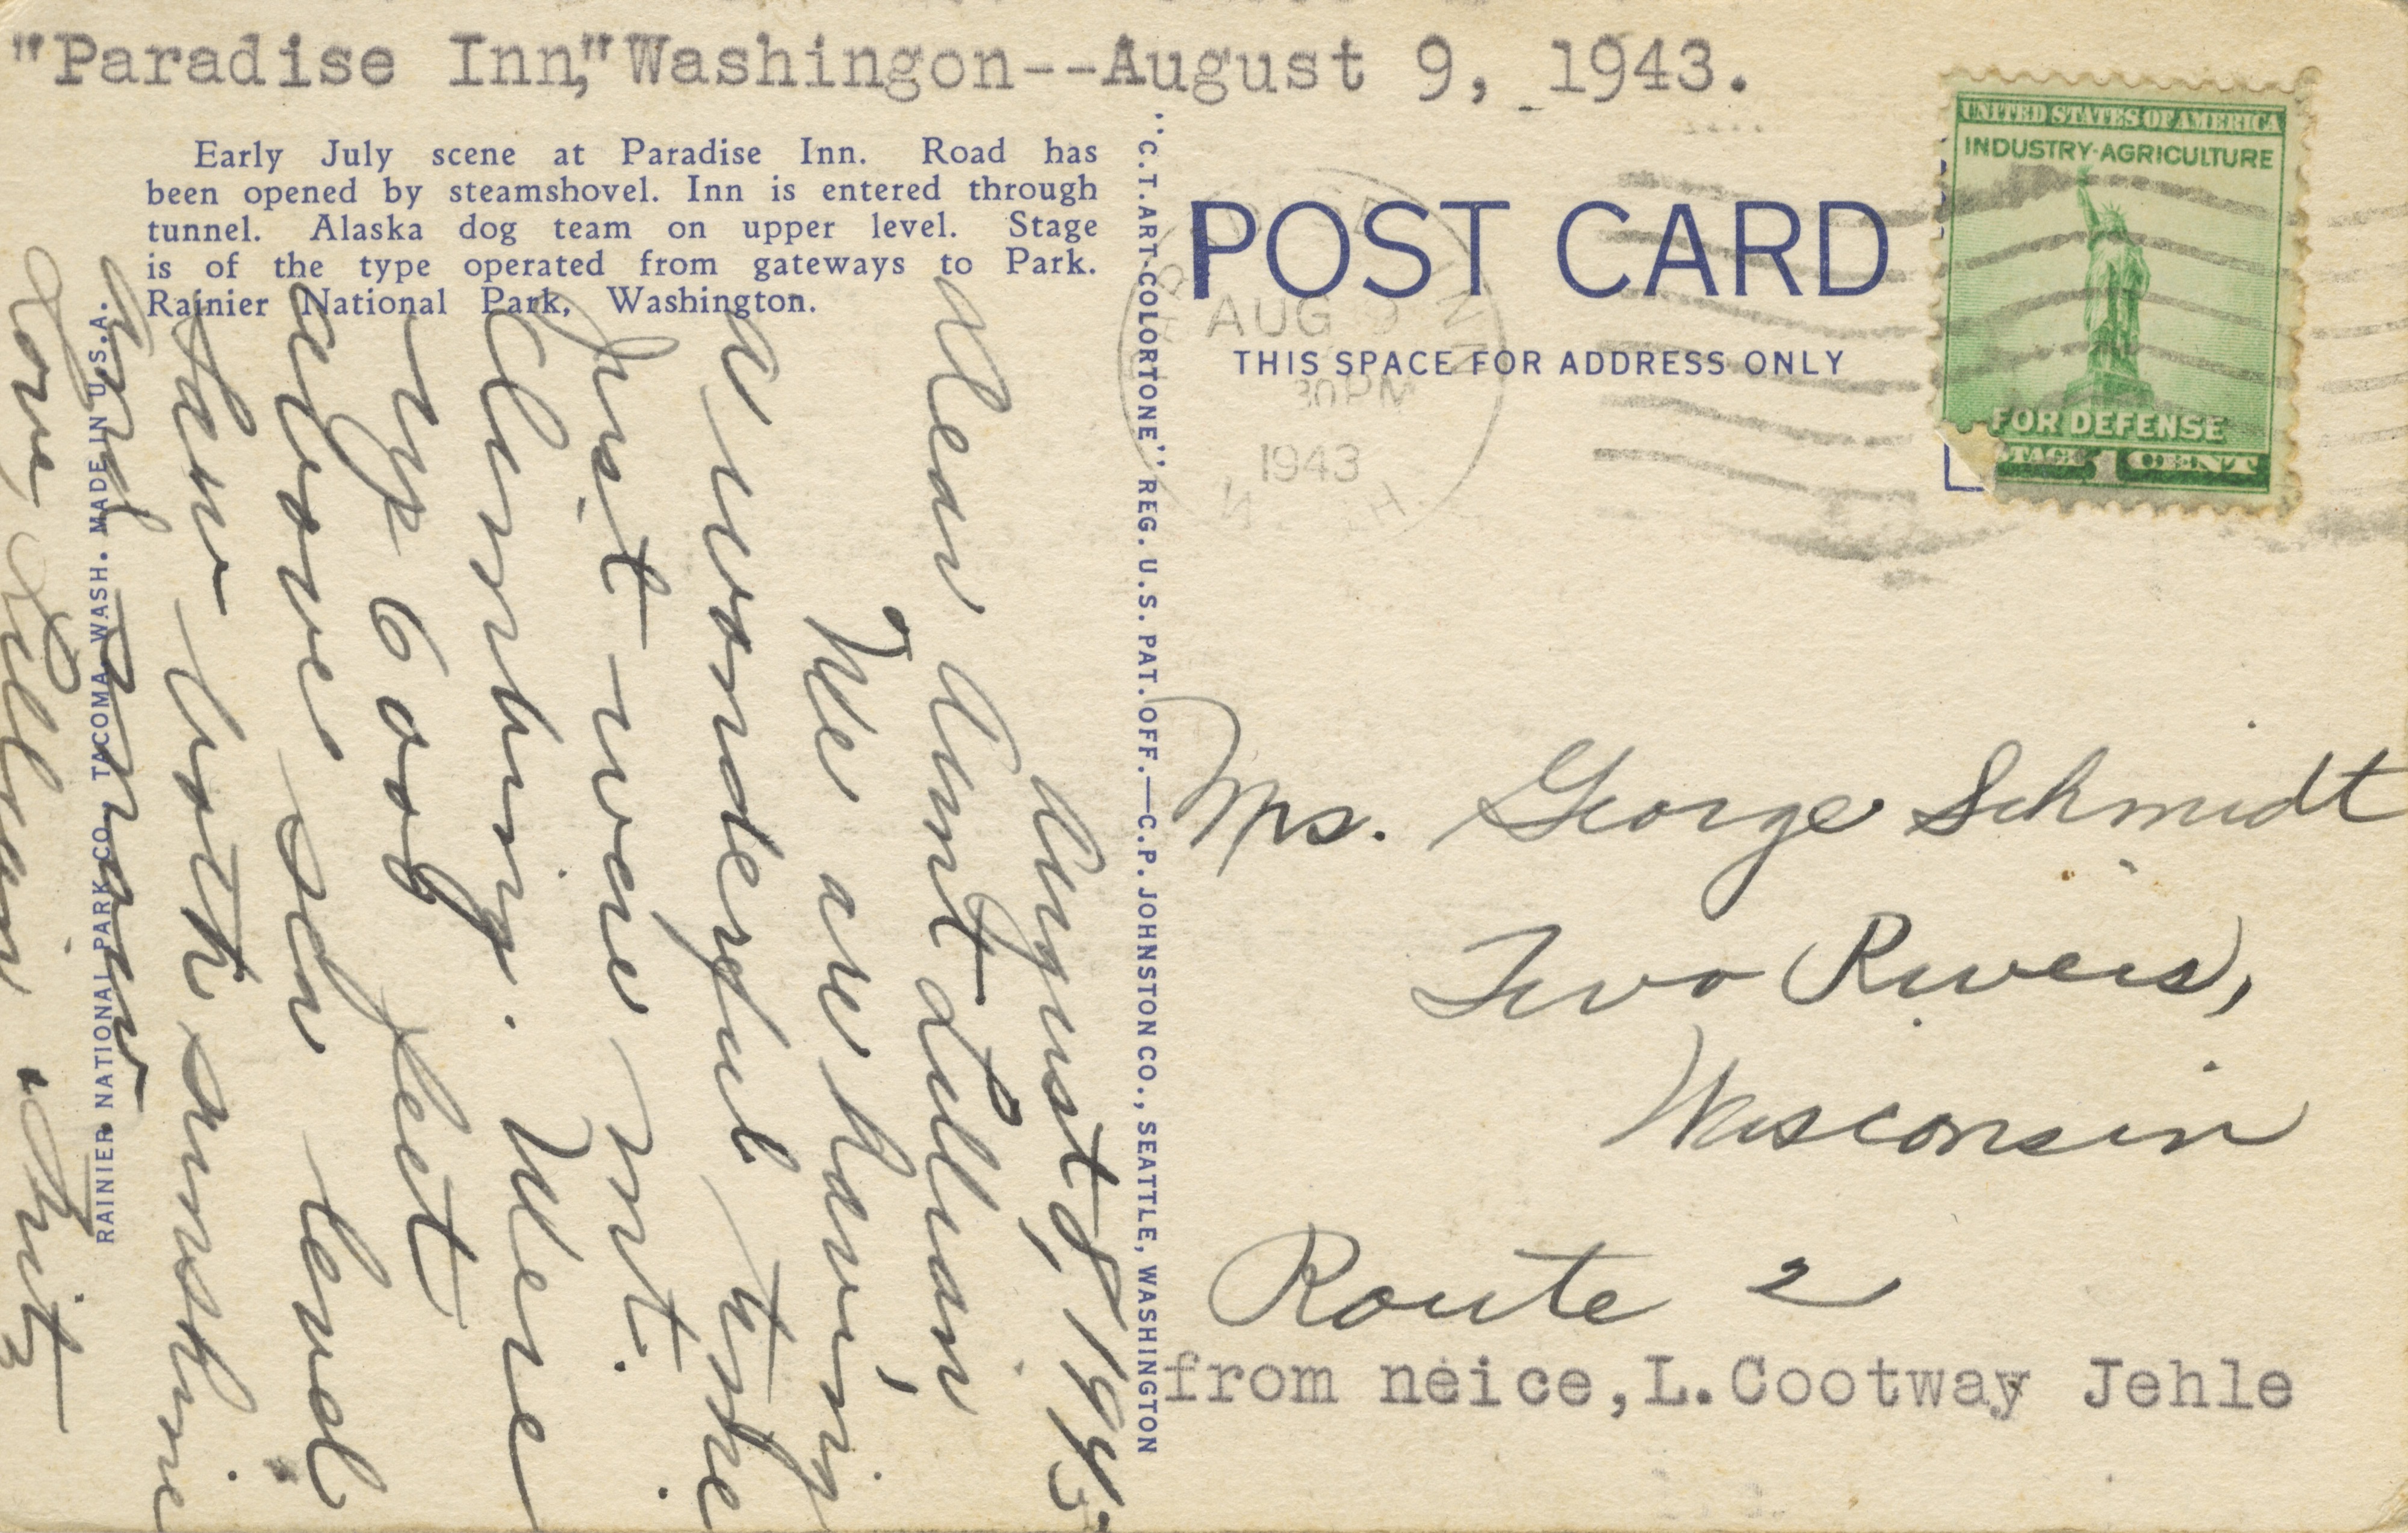 "Paradise Inn,"Washingon--August 9, 1943.
Early July scene at Paradise Inn. Road has
been opened by steamshovel. Inn is entered through
tunnel. Alaska dog team on upper level. Stage
is of the type operated from gateways to Park.
Rainier National Park, Washington.
August 8, 1943
Dear Aunt Lillian,
We are having
a wonderful time
Just - were mt.
Climbing. Were
up 6000 feet
above sea level
Saw both sunshine
and snow
Love, Lillian & Fritz
RAINIER NATIONAL PARK CO., TACOMA, WASH. MADE IN U.S.A.
"C.T. ART-COLORTONE" REG. U.S. PAT. OFF.—C. P. JOHNSTON CO., SEATTLE, WASHINGTON
POST CARD
THIS SPACE FOR ADDRESS ONLY
AUG 9
30 PM
1943
UNITED STATES OF AMERICA
INDUSTRY-AGRICULTURE
FOR DEFENSE
1 CENT
Mrs. George Schmidt
Two Rivers,
Wisconsin
Route 2
from neice,L.Cootway Jehle